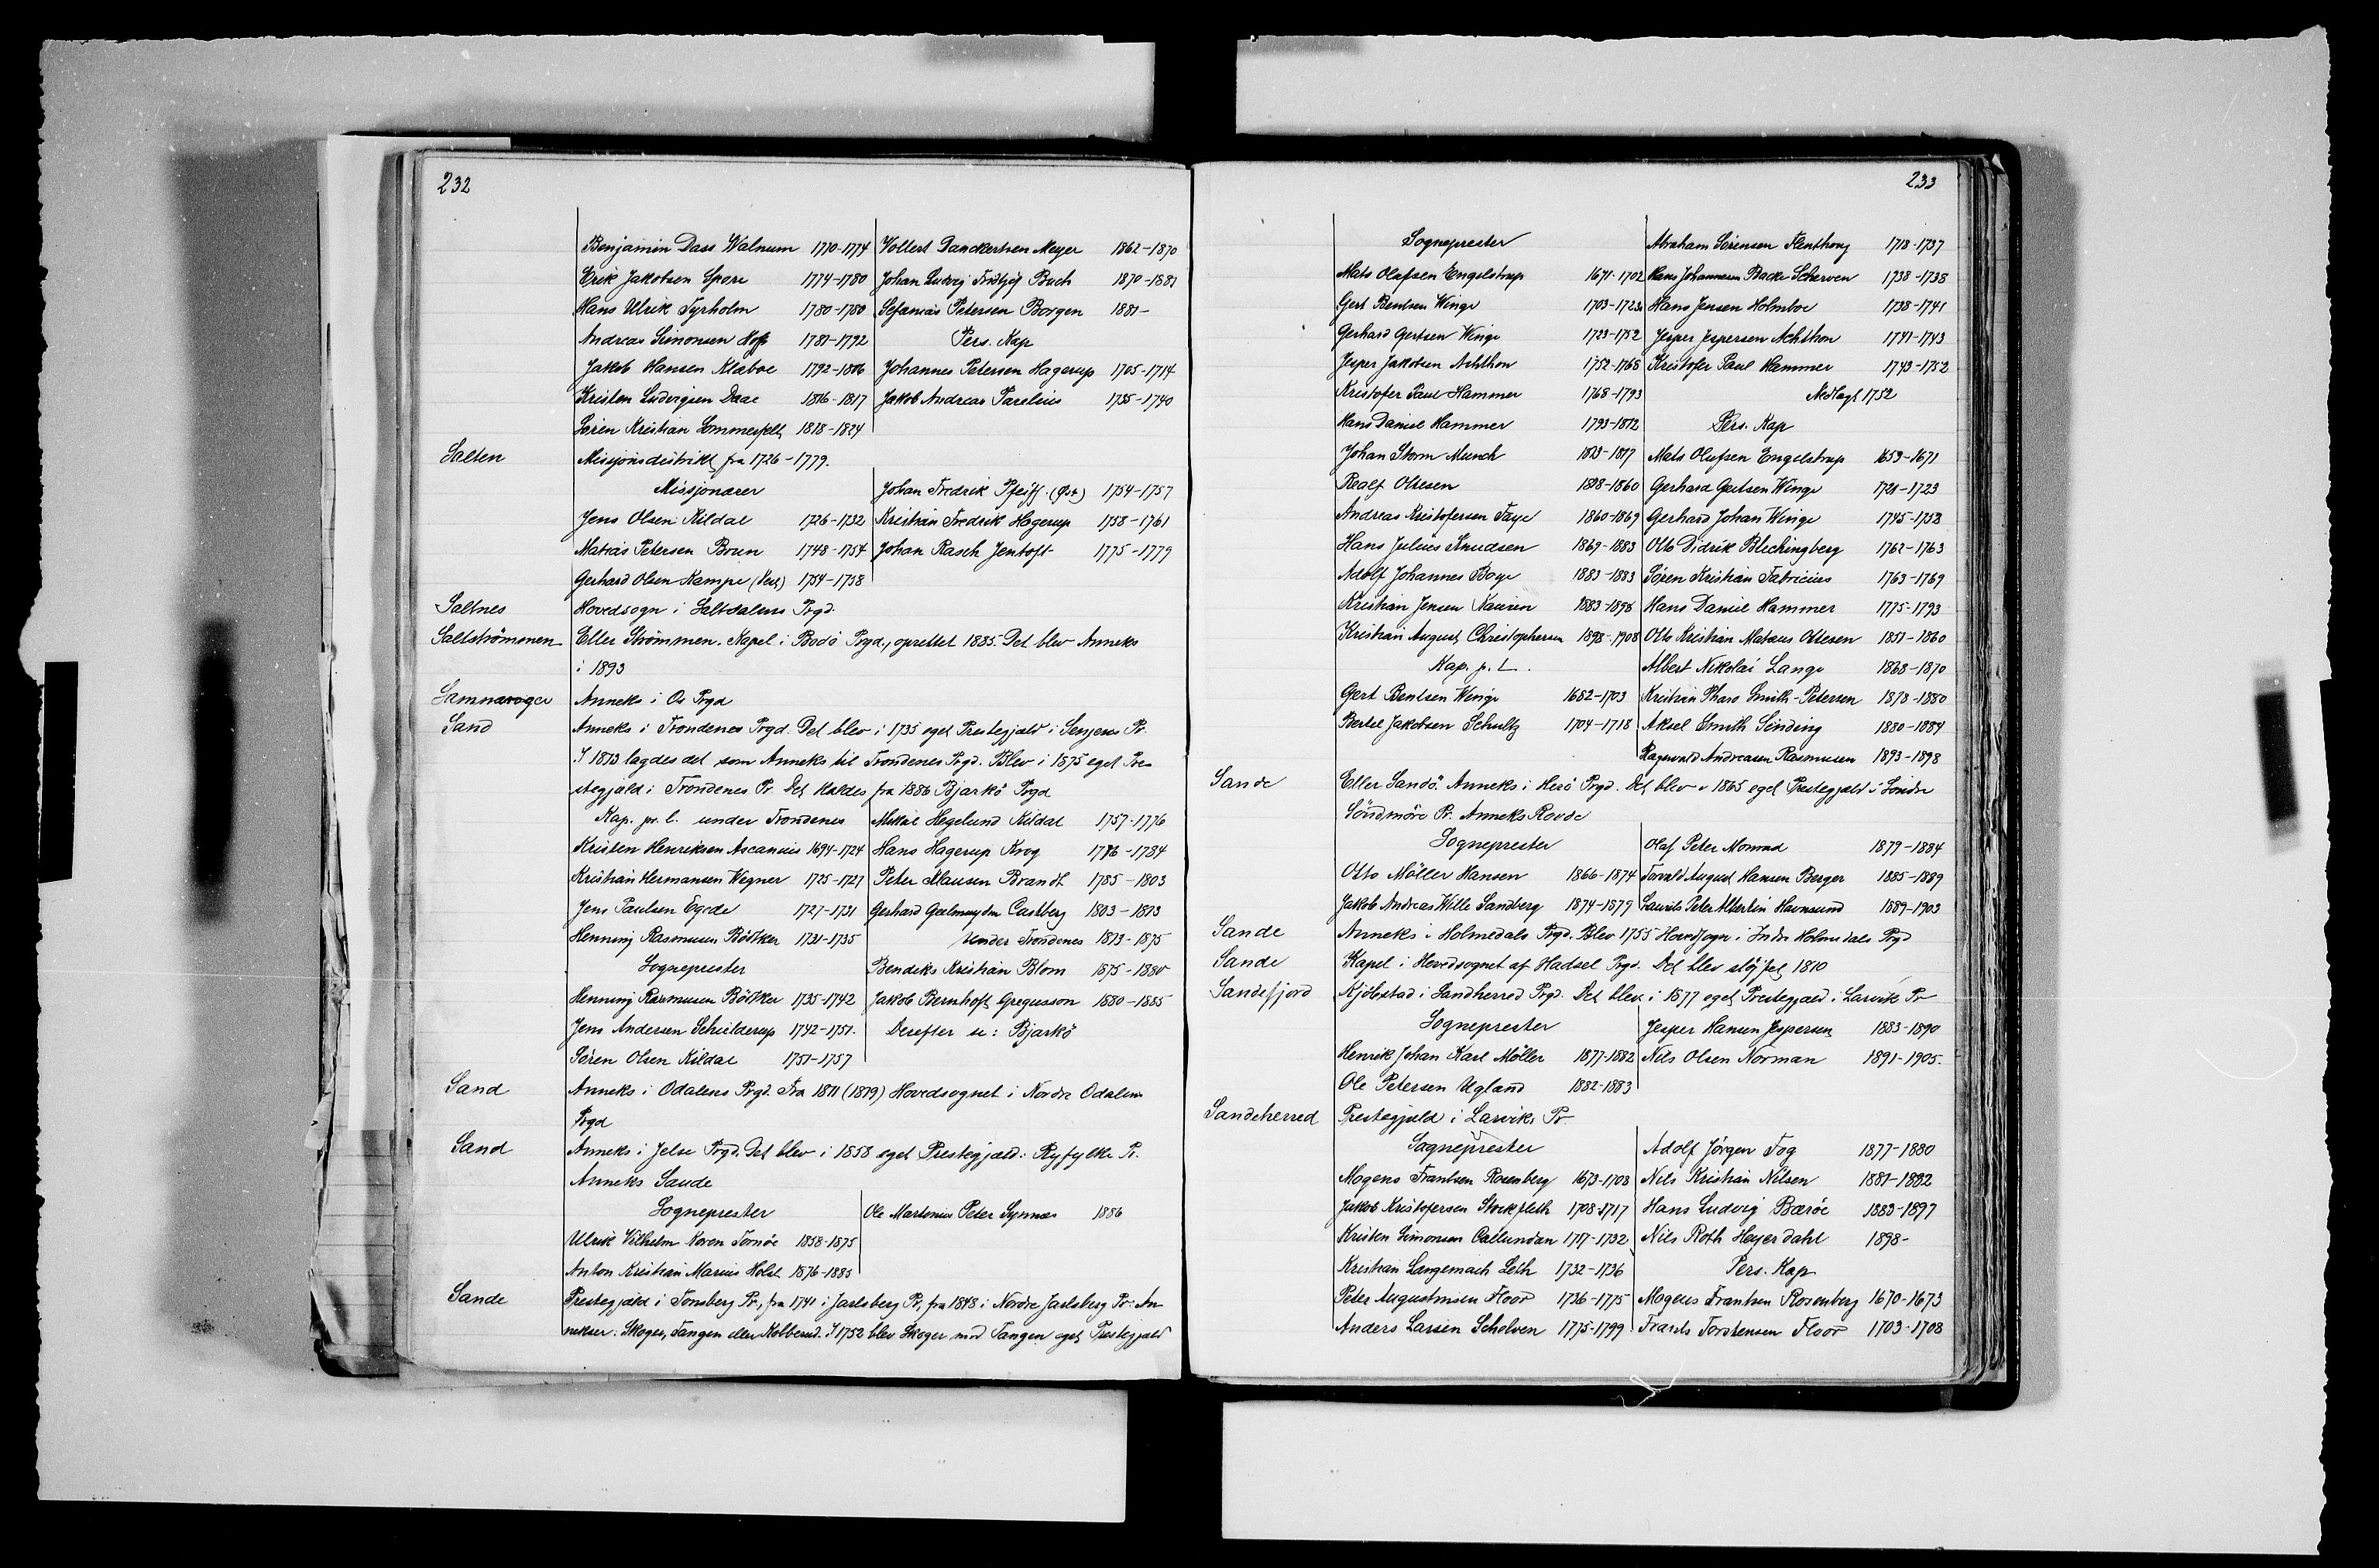 232
Benjamin Dass Walnum 1770-1774 Vollert Danckertsen Meyer 1862-1870
Erik Jakobsen Spore 1774-1780 Johan Ludvig Fridtjof Buch 1870-1881
Hans Ulrik Tyrholm 1780-1780 Sefanias Petersen Borgen 1881-
Andreas Simonsen Hof 1781-1792 Pers. Kap
Jakob Hansen Klaboe 1792-1816 Johannes Petersen Hagerup 1705-1714
Kristen Ludvigsen Daae 1816-1817 Jakob Andreas Parelius 1735-1740
Sören Kristian Sommerfelt 1818-1824
Salten Missjonsdistrikt fra 1726-1779.
Missjonærer Johan Fredrik Pfeiff. (Öst) 1754-1757
Jens Olsen Kildal 1726-1732 Kristian Fredrik Hagerup 1758-1761
Matias Petersen Brun 1748-1754 Johan Rasch Jentoft 1775-1779
Gerhard Olsen Kampe (Vest) 1754-1758
Saltnes Hovedsogn i Saltdalens Prgd.
Saltströmmen Eller Strömmen. Kapel i Bodö Prgd., oprettet 1885. Det blev Anneks
i 1893
Samnanger Anneks i Os Prgd
Sand Anneks i Trondenes Prgd. Det blev i 1735 eget Prestegjeld i Senjens Pr.
I 1813 lagdes det som Anneks til Trondenes Prgd. Blev i 1875 eget Pre-
stegjeld i Trondenes Pr. Det kaldes fra 1886 Bjarkö Prgd
Kap. pr. l. under Trondenes Mikal Hegelund Kildal 1757-1776
Kristen Henriksen Ascanius 1694-1724 Hans Hagerup Krog 1776-1784
Kristian Hermansen Wegner 1725-1727 Peter Clausen Brandt 1785-1803
Jens Paulsen Egede 1727-1731 Gerhard Geelmuyden Castberg 1803-1813
Henning Rasmusen Bödtker 1731-1735 Under Trondenes 1813-1875
Sogneprester Bendeks Kristian Blom 1875-1880
Henning Rasmusen Bödtker 1735-1742 Jakob Bernhoft Gregusson 1880-1885
Jens Andersen Schielderup 1742-1751. Derefter se: Bjarkö
Sören Olsen Kildal 1751-1757
Sand Anneks i Odalens Prgd. Fra 1811 (1819) Hovedsognet i Nordre Odalens
Prgd
Sand Anneks i Jelse Prgd. Det blev i 1858 eget Prestegjeld i Ryfylke Pr.
Anneks Saude
Sogneprester Ole Martonius Peter Synnæs 1886
Ulrik Vilhelm Koren Tornöe 1858-1875
Anton Kristian Marius Holst 1876-1885
Sande Prestegjeld i Tönsberg Pr., fra 1741 i Jarlsberg Pr., fra 1848 i Nordre Jarlsberg Pr. An-
nekser: Skoger, Tangen eller Kobberud. I 1752 blev Skoger med Tangen eget Prestegjeld
233
Sogneprester Abraham Sörensen Flenthoug 1718-1737
Mats Olufsen Engelstrup 1671-1702 Hans Johannesen Backe Scherven 1738-1738
Gert Bentsen Winge 1703-1723 Hans Jensen Holmboe 1738-1741
Gerhard Gertsen Winge 1723-1752 Jesper Jespersen Achthon 1741-1743
Jesper Jakobsen Achthon 1752-1768 Kristofer Paul Hammer 1743-1752
Kristofer Paul Hammer 1768-1793 Nedlagt 1752
Hans Daniel Hammer 1793-1812 Pers. Kap
Johan Storm Munch 1813-1817 Mats Olufsen Engelstrup 1659-1671
Realf Ottesen 1818-1860 Gerhard Gertsen Winge 1721-1723
Andreas Kristofersen Faye 1860-1869 Gerhard Johan Winge 1745-1752
Hans Julius Knudsen 1869-1883 Otto Didrik Blechingberg 1762-1763
Adolf Johannes Boye 1883-1883 Sören Kristian Fabricius 1763-1769
Kristian Jensen Kaurin 1883-1898 Hans Daniel Hammer 1775-1793
Kristian August Christophersen 1898-1908 Otto Kristian Mataus Ottesen 1851-1860
Kap. p. L. Albert Nikolai Lange 1868-1870
Gert Bentsen Winge 1652-1703 Kristian Pharo Smith-Petersen 1878-1880
Bertel Jakobsen Schultz 1704-1718 Aksel Smith Sinding 1880-1884
Ragnvald Andreasen Rasmusen 1893-1898
Sande Eller Sandö. Anneks i Herö Prgd. Det blev i 1865 eget Prestegjeld i Söndre
Söndmöre Pr. Anneks Rovde
Sogneprester Olaf Peter Monrad 1879-1884
Otto Möller Hansen 1866-1874 Torvald August Hansen Berger 1885-1889
Jakob Andreas Wille Sandberg 1874-1879 Laurits Peter Albertin Havnsund 1889-1903
Sande Anneks i Holmedals Prgd. Blev 1755 Hovedsogn i Indre Holmedals Prgd
Sande Kapel i Hovedsognet af Hadsel Prgd. Det blev slöjfet 1810
Sandefjord Kjöbstad i Sandherred Prgd. Det blev i 1877 eget Prestegjeld i Larvik Pr
Sogneprester Jesper Hansen Jespersen 1883-1890
Henrik Johan Karl Möller 1877-1882 Nils Olsen Norman 1891-1905.
Ole Petersen Ugland 1882-1883
Sandeherred Prestegjeld i Larviks Pr
Sogneprester Adolf Jörgen Fog 1877-1880
Mogens Frantsen Rosenberg 1673-1708 Nils Kristian Nilsen 1881-1882
Jakob Kristofersen Stockfleth 1708-1717 Hans Ludvig Bæröe 1883-1897
Kristen Simonsen Callundan 1717-1732 Nils Roth Heyerdahl 1898-
Kristian Langemach Leth 1732-1736 Pers. Kap
Peter Augustinsen Floor 1736-1775 Mogens Frantsen Rosenberg 1670-1673
Anders Larsen Scholven 1775-1799 Frants Torstensen Floor 1703-1708